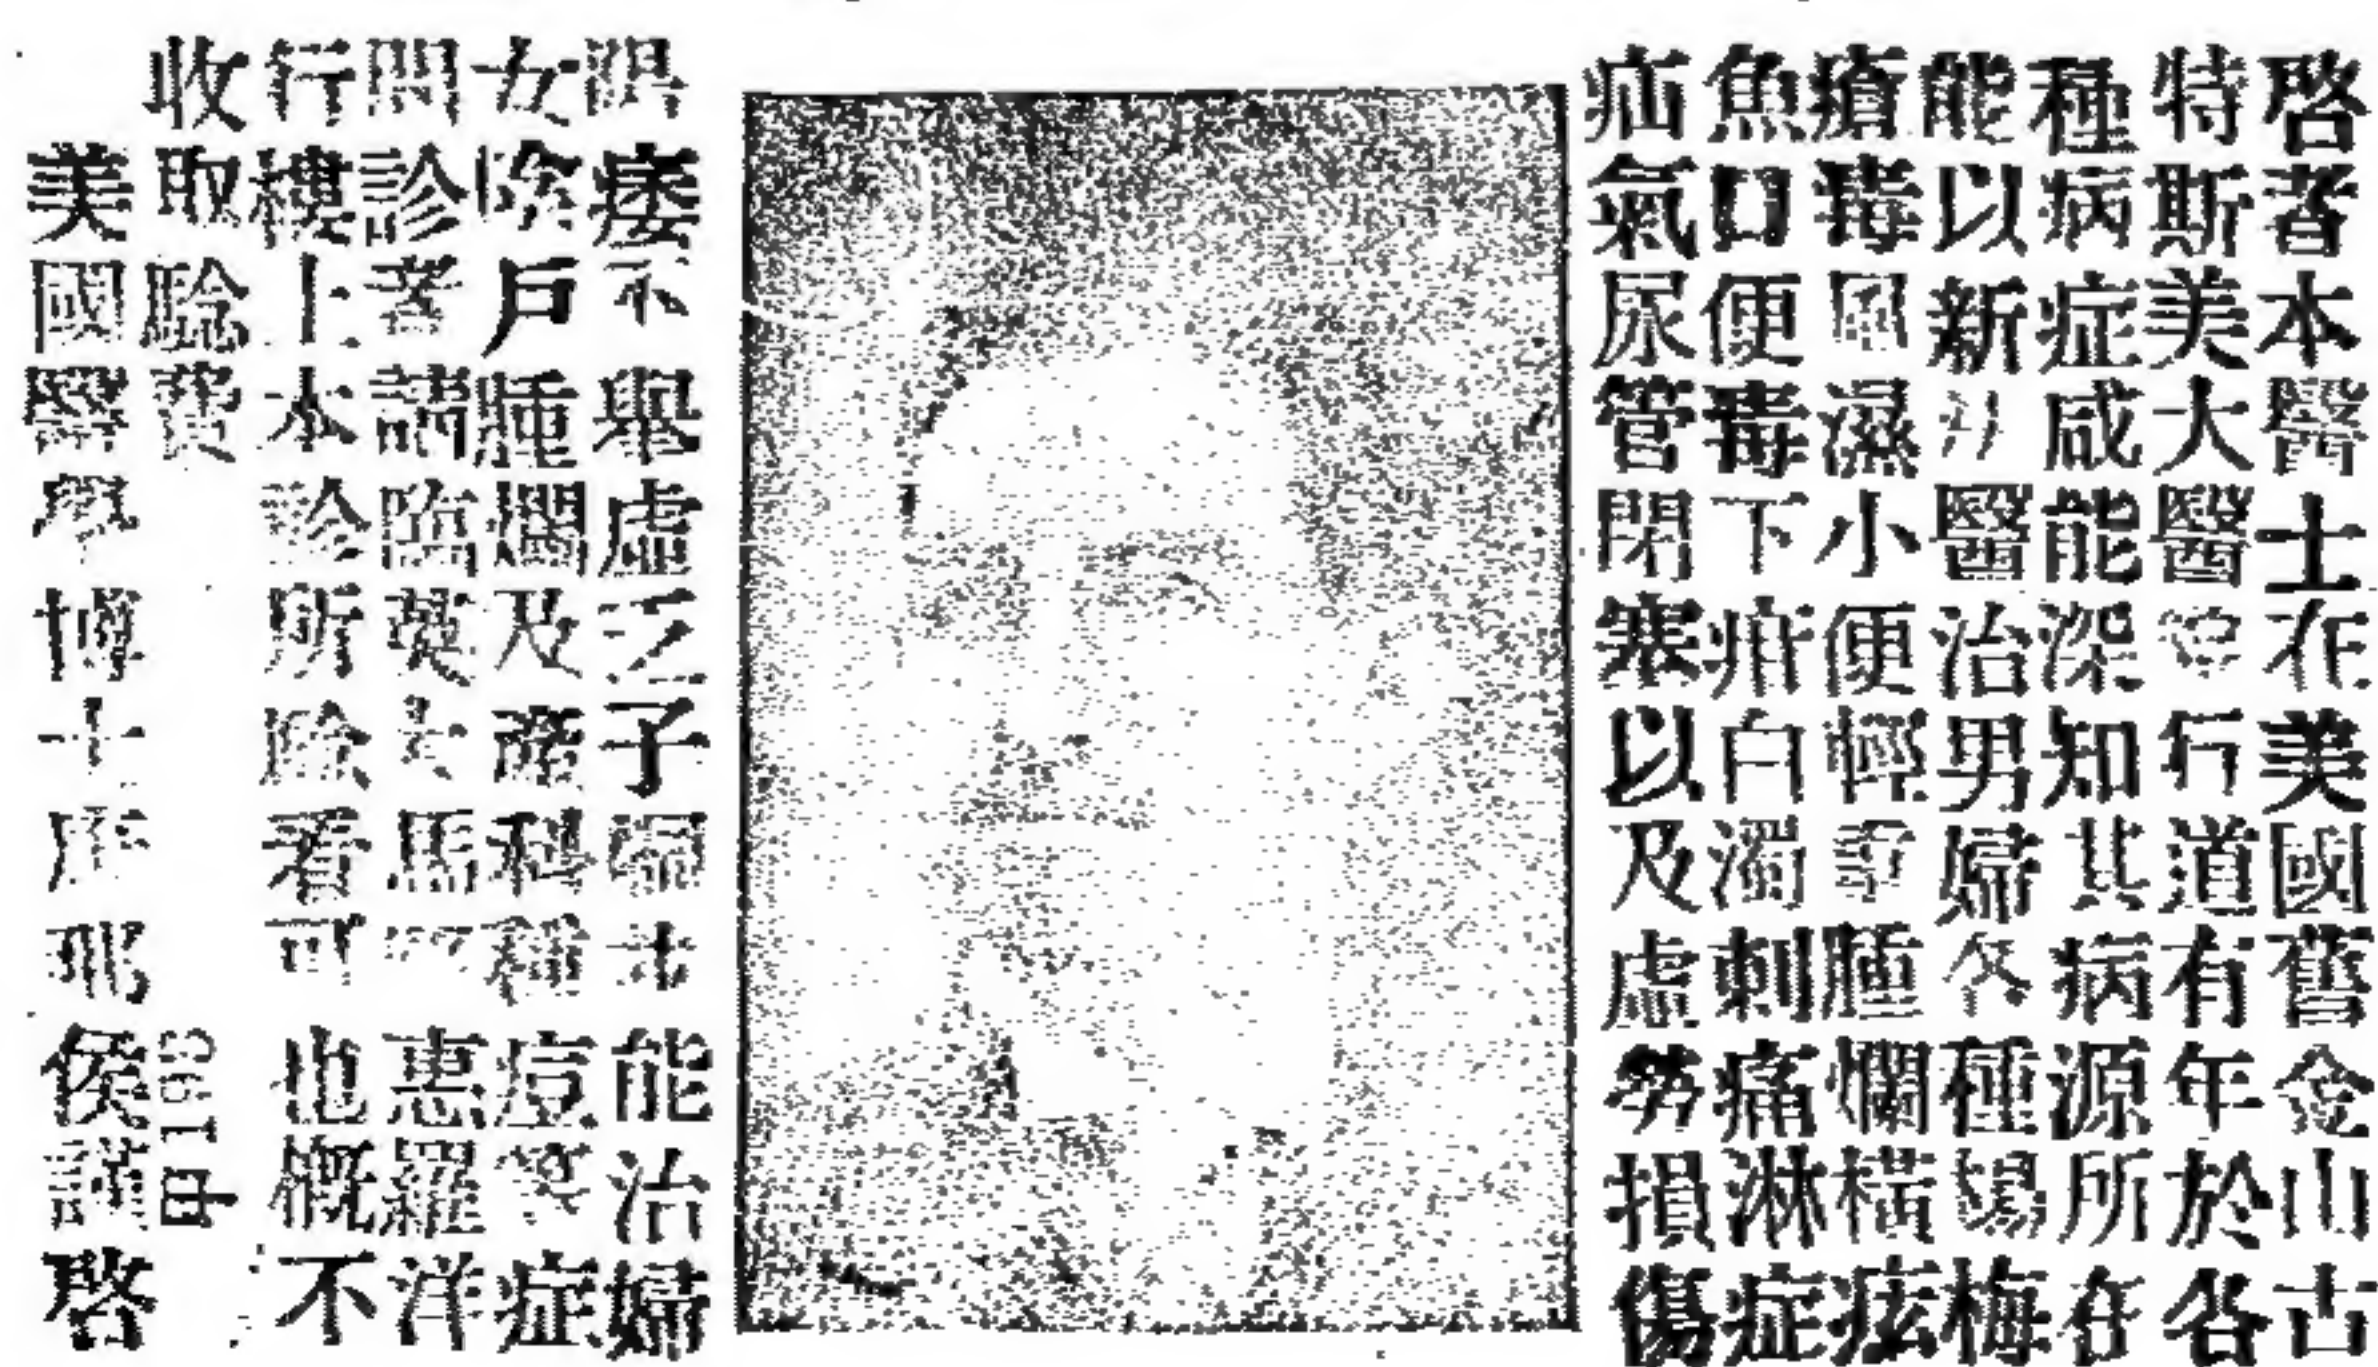 啓者本醫士在美國舊金山古
特斯美大醫院行道有年於各
種病症咸能深知其病源所在
能以新 醫治男婦各種楊梅
瘡毒 濕小便輕 腫爛橫痃
魚口便毒下疳白濁刺痛淋症
疝氣尿管閉塞以及虛勞損傷
陽痿不舉虛乏子 能治婦
女陰戶腫爛及產科種痘等症
問診者請臨英大馬 惠羅洋
行樓上本診所騐看可也概不
收取騐費
甲193
美國醫學博士 侯謹啓